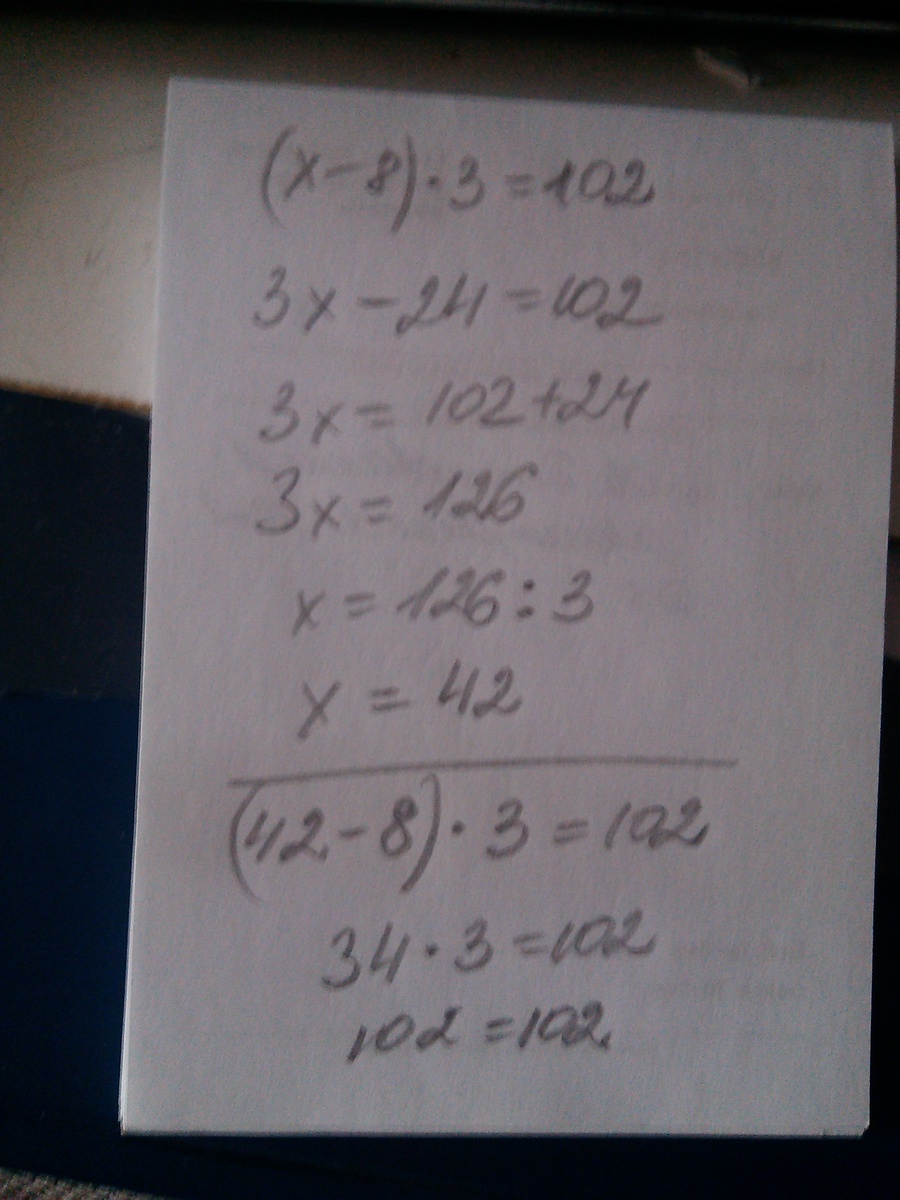 (x-8)·3=102
3x-24=102
3x=102+24
3x=126
x=126:3
x=42
(42-8)·3=102
34·3=102
102=102